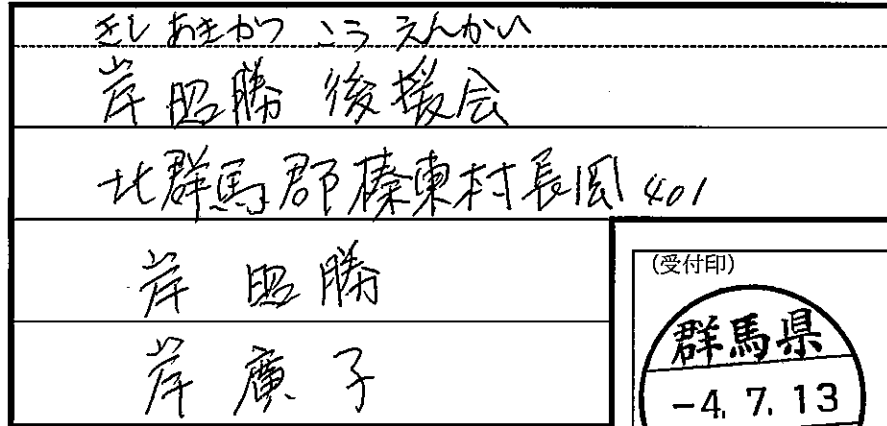 きしあきかつ こうえんかい
岸昭勝 後援会
北群馬郡榛東村長岡401
岸 昭勝
岸 廣子
(受付印)
群馬県
-4.7.13